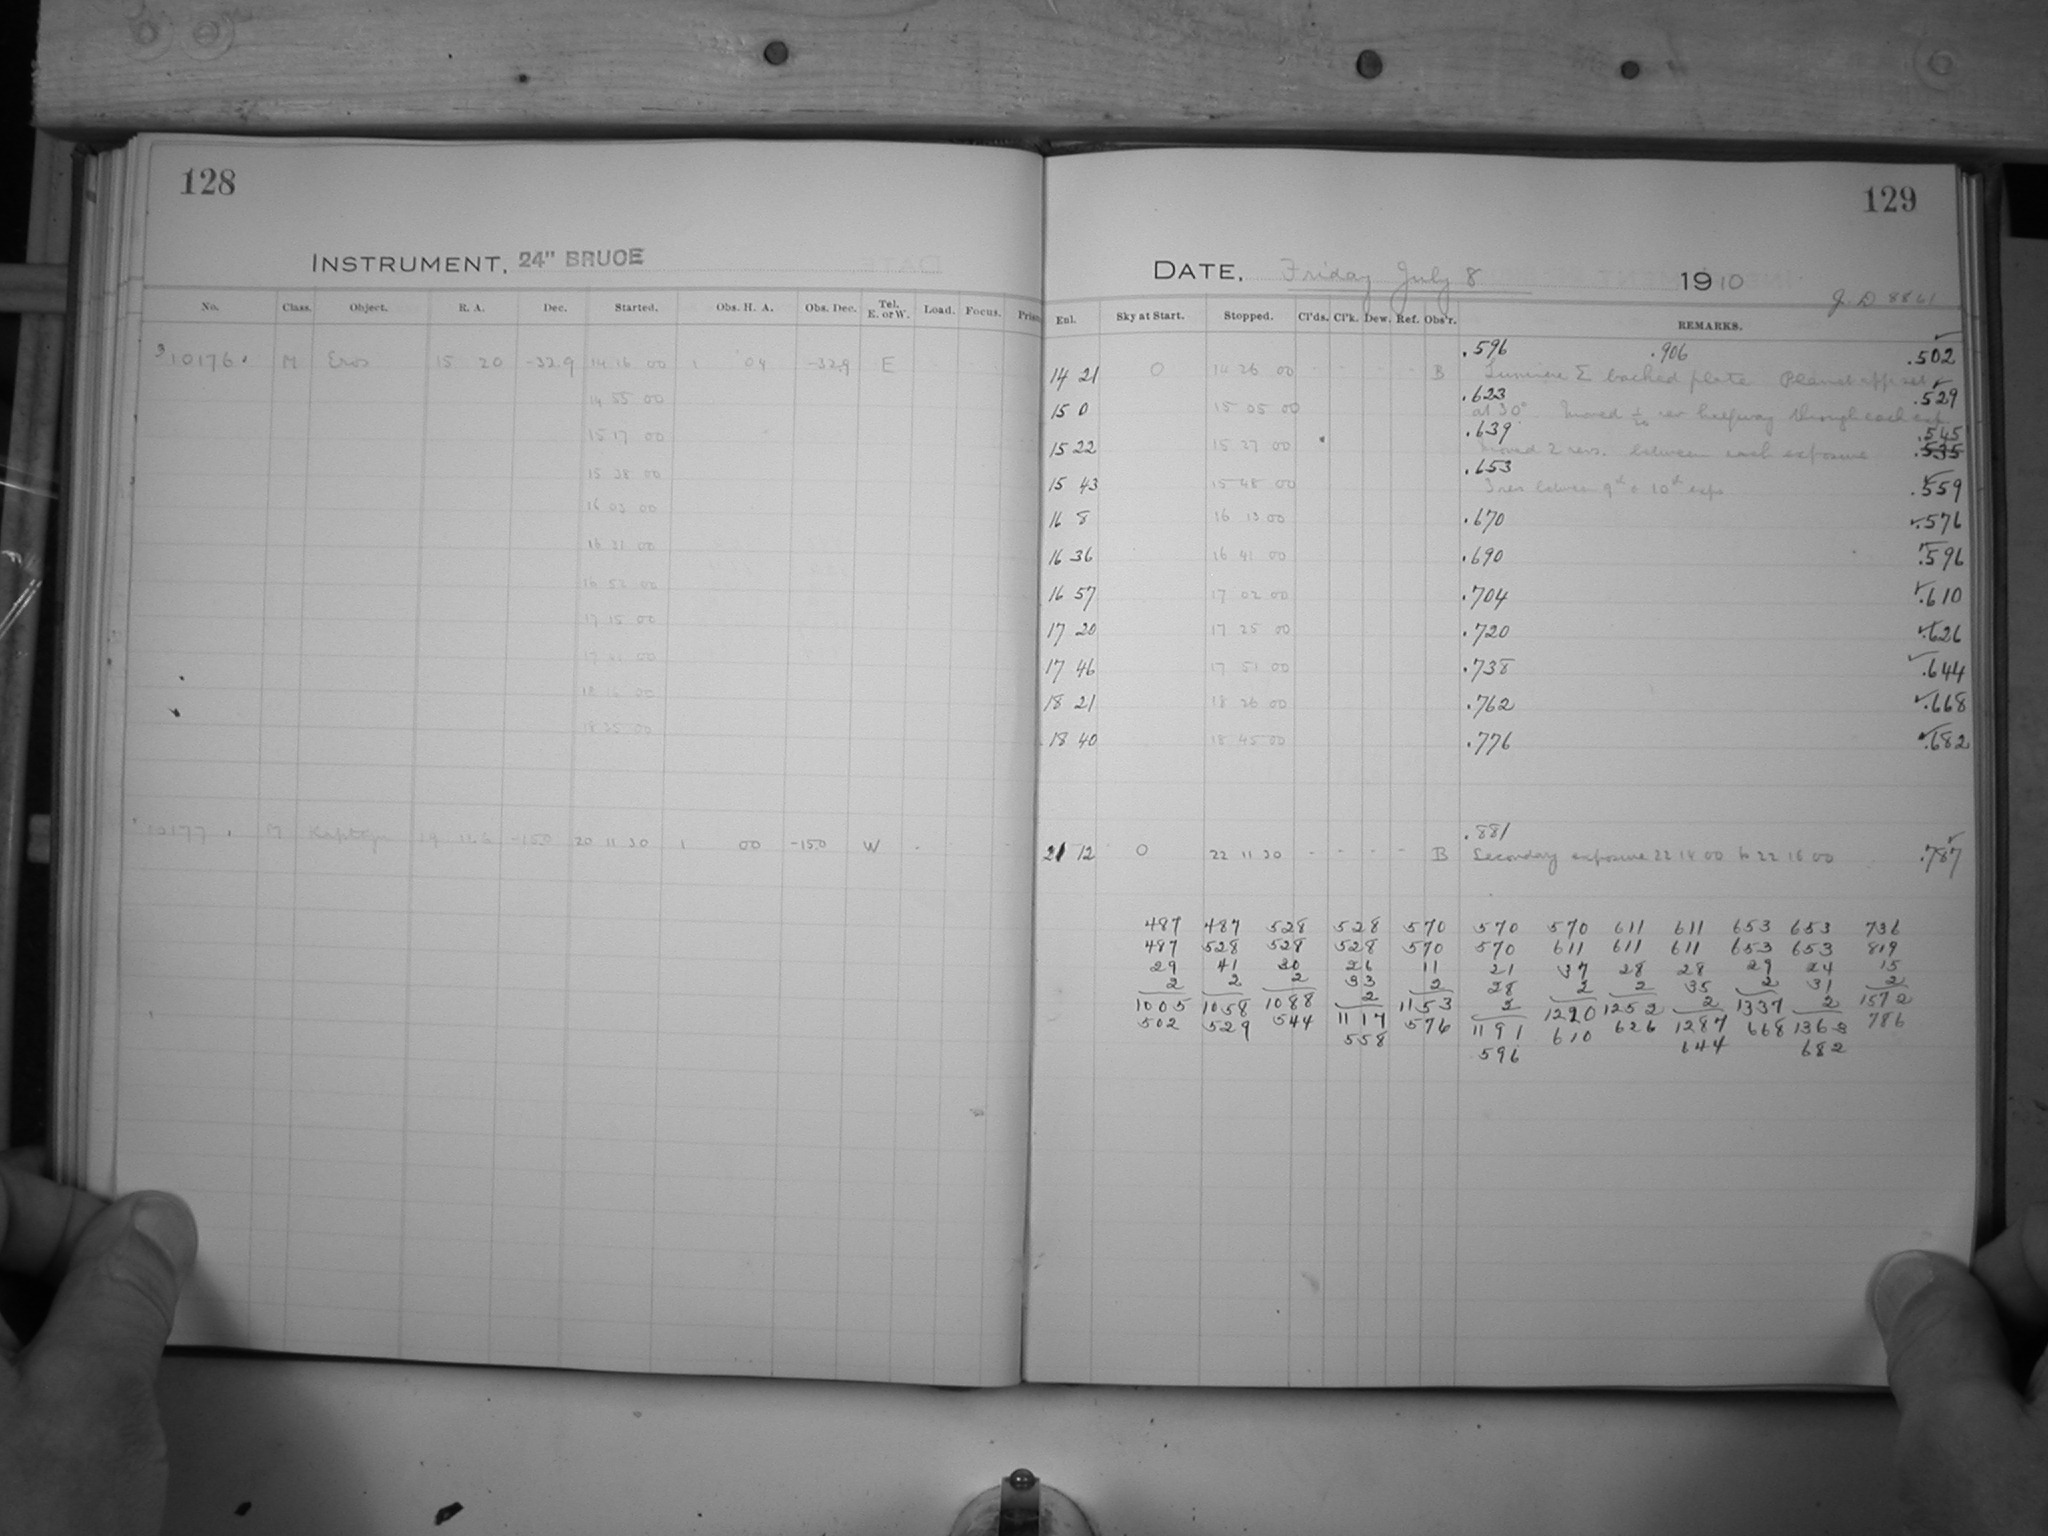 128
INSTRUMENT, 24" BRUCE
No. Class. Object. R. A. Dec. Started. Obs. H. A. Obs. Dec. Tel. E. or W. Load. Focus.
10176 M Eros 15 20 -32.9 14 16 00 1 04 -32.9 E
14 55 00
15 17 00
15 38 00
16 03 00
16 31 00
16 52 00
17 15 00
17 41 00
18 16 00
18 35 00
10177 M Kapteyn 19 11.6 -15.0 20 11 30 1 00 -15.0 W
129
DATE, Friday July 8 1910
J. D 8861
Enl. Sky at Start. Stopped. Cl'ds. Cl'k. Dew. Ref. Obs'r. REMARKS.
.596 .906 .502
14 21 0 14 26 00 - - - - B Lumiere Σ backed plate Planet offset
.623 .529
15 0 15 05 00 at 30° Moved rev halfway through each exp.
.639 .545
15 22 15 27 00 Moved 2 revs. between each exposure .535
.653
15 43 15 48 00 3 rev between 9th & 10th exps .559
16 8 16 13 00 .670 .576
16 36 16 41 00 .690 .596
16 57 17 02 00 .704 .610
17 20 17 25 00 .720 .626
17 46 17 51 00 .738 .644
18 21 18 26 00 .762 .668
18 40 18 45 00 .776 .682
.881
21 12 0 22 11 30 - - - - B Secondary exposure 22 14 00 to 22 16 00 .787
487 487 528 528 570 570 570 611 611 653 653 736
487 528 528 528 570 570 611 611 611 653 653 819
29 41 30 26 11 21 37 28 28 29 24 15
2 2 2 33 2 28 2 2 35 2 31 2
1005 1058 1088 2 1153 2 1220 1252 2 1337 2 1572
502 529 544 1117 576 1191 610 626 1287 668 1363 786
558 596 644 682